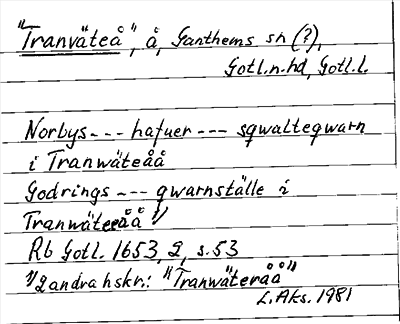 "Tranväteå", å, Ganthems sn (?),
Gotl.n.hd, Gotl.l.
Norbys --- hafuer --- sqwalteqwarn
i Tranwäteåå
Godrings --- qwarnställe i
Tranwäteråå 1)
Rb Gotl. 1653, 2, s.53
1) 2 andra hskr.: "Tranwäteråå"
L.Aks. 1981